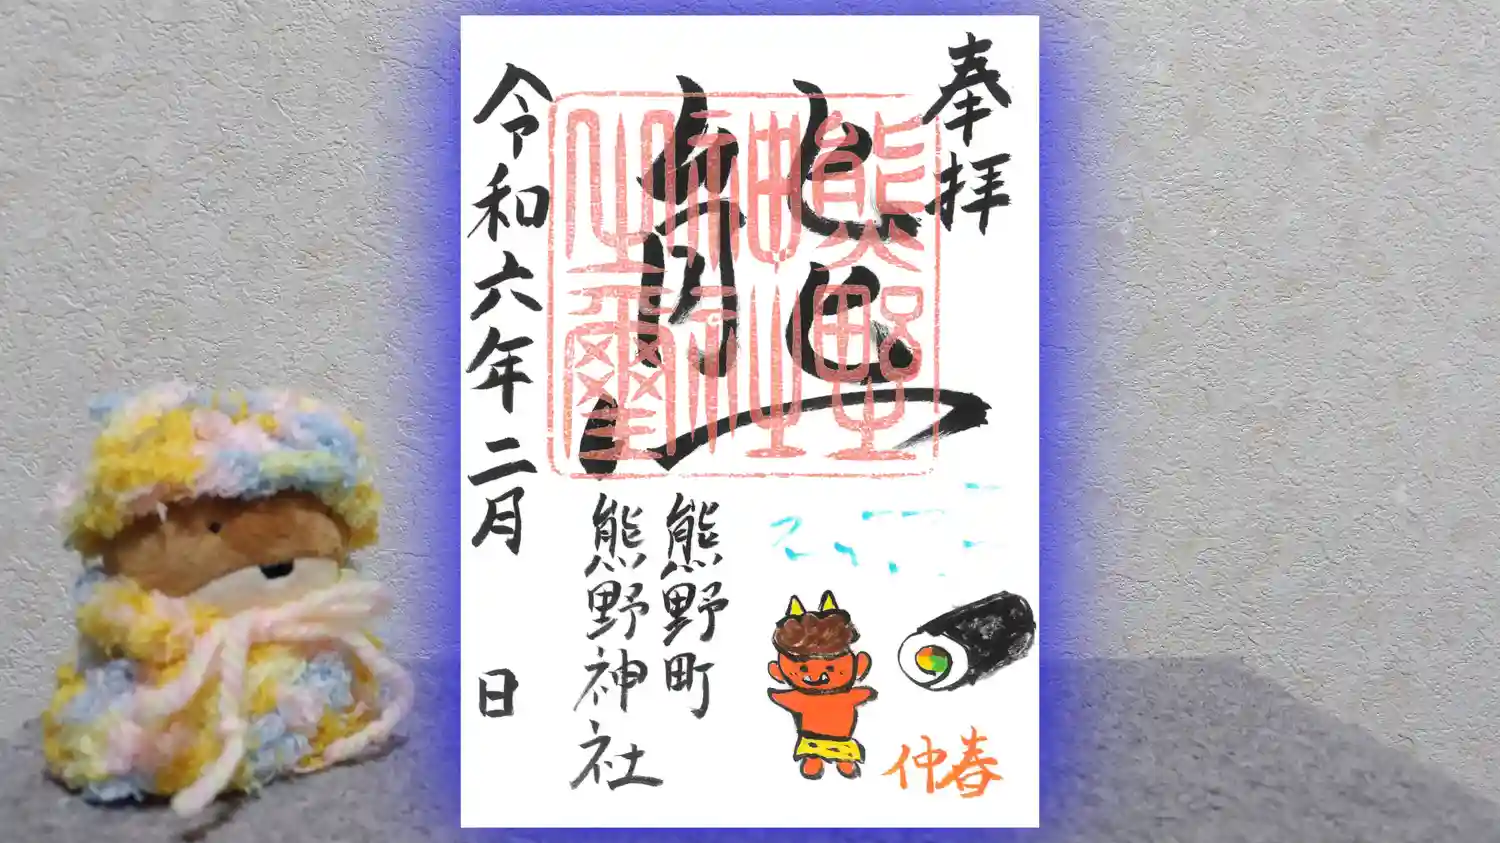 奉拝
熊野神社璽
熊野町
熊野神社
令和六年二月 日
仲春